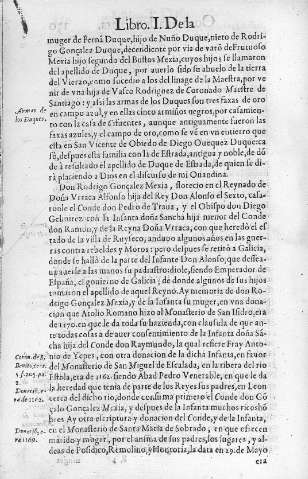 Libro. I. De la
muger de Fernã Duque, hijo de Nuño Duque, nieto de Rodri-
go Gonçalez Duque, decendiente por via de varõ de Frutuoso
Mexia hijo segundo del Bustos Mexia, cuyos hijos se llamaron
del apellido de Duque, por auerlo sido su abuelo de la tierra
del Vierzo, como sucedio a los del linage de la Maestra, por ve-
nir de vna hija de Vasco Rodriguez de Coronado Maestre de
Santiago: y assi las armas de los Duques son tres faxas de oro
en campo azul, y en ellas cinco armiños negros, por casamien-
to con la casa de Cifuentes, aunque antiguamente fueron las
faxas azules, y el campo de oro, como se vè en vn entierro que
està en San Vicente de Obiedo de Diego Ouequez Duque. ca
sò, despues esta familia con la de Estrada, antigua y noble, de dõ
de à resultado el apellido de Duque de Estrada, de quien se di-
rà placiendo a Dios en el discurso de mi
Armas de
los Duques.
Don Rodrigo Gonçalez Mexia, florecio en el Reynado de
Doña Vrraca Alfonso hija del Rey Don Alonso el Sexto, casa-
ronle el Conde don Pedro de Traua, y el Obispo don Diego
Gelmirez con la Infanta doña Sancha hija menor del Conde
don Ramon, y de la Reyna doña Vrraca, con que heredò el es-
tado de la villa de anduuo algunos años en las gue-
rras contra rebeldes y Moros: pero despues se retirò a Galicia,
donde se hallò de la parte del Infante Don Alonso, que desea-
ua auerse a las manos
España, el gouierno de Galicia; de donde algunos de sus hijos
tomaron el apellido de aquel Reyno. Ay memoria de don Ro-
drigo Gonçalez Mexia, y de la Infanta su muger, en vna dona-
cion que Atolio Romano hizo al Monasterio de San Isidro, era
de 1170. en que le da toda su hazienda, con clausula de que an-
te todas cosas a de auer consentimiento de la Infanta doña Sã-
cha hija del Conde don Raymundo, la qual refiere Fray Anto-
nio de Yepes, con otra donacion de la dicha Infanta, en fauor
del Monasterio de San Miguel de Escalada, en la ribera del rio
Estola, era de 1162. siendo Abad Pedro Venerable, en que le da
la heredad que tenia de parte de los Reyes sus padres, en Leon
cerca del dicho rio, donde confirma primero el Conde don Gõ
çalo Gonçalez Mexia, y despues de la Infanta muchos ricos
bres Ay otra escriptura y donacion del Conde, y de la Infanta,
en el Monasterio de Santa Maria de Sobrado, en que ofrecen
marido y muger, por el anima de sus padres, los lugares, y al-
deas de Posidico, Remolino, y la data en 29. de Mayo
era